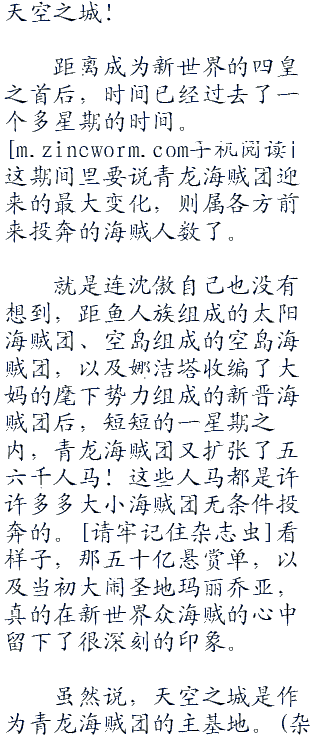 天空之城!
距离成为新世界的四皇
之首后，时间已经过去了一
个多星期的时间。
[m.zincworm.com手机阅读]
这期间里要说青龙海贼团迎
来的最大变化，则属各方前
来投奔的海贼人数了。
就是连沈傲自己也没有
想到，距鱼人族组成的太阳
海贼团、空岛组成的空岛海
贼团，以及娜洁塔收编了大
妈的麾下势力组成的新晋海
贼团后，短短的一星期之
内，青龙海贼团又扩张了五
六千人马！这些人马都是许
许多多大小海贼团无条件投
奔的。[请牢记住杂志虫]看
样子，那五十亿悬赏单，以
及当初大闹圣地玛丽乔亚，
真的在新世界众海贼的心中
留下了很深刻的印象。
虽然说，天空之城是作
为青龙海贼团的主基地。(杂